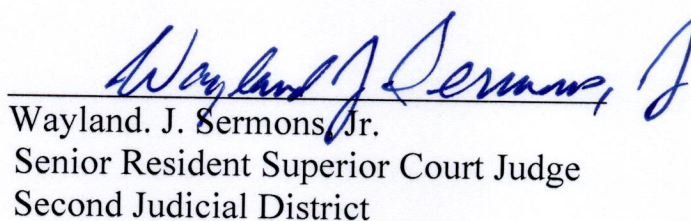 Wayland J Sermons, J
Wayland. J. Sermons, Jr.
Senior Resident Superior Court Judge
Second Judicial District